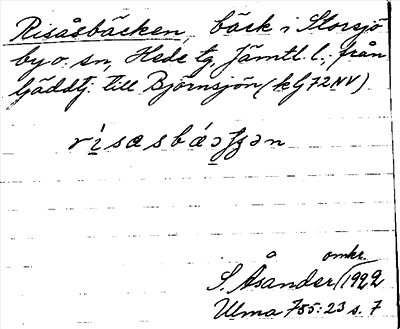 Risåsbäcken, bäck i Storsjö
by o. sn, Hede tg, Jämtl. l., från
Gäddtj. till Björnsjön (kG72NV)
omkr.
S. Åsander/1922
Ulma 755:23 s. 7